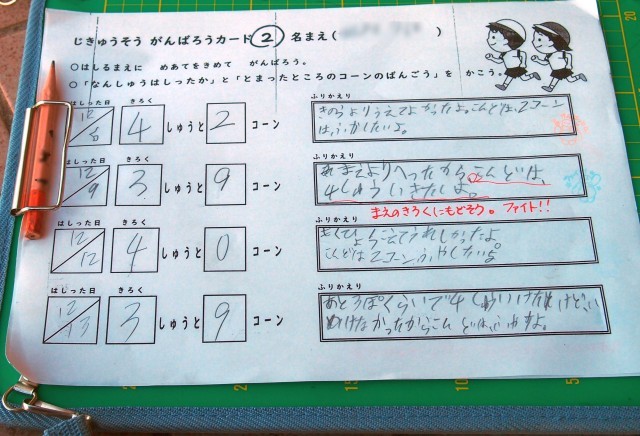 じきゅうそう がんばろうカード② 名まえ( )
○はしるまえに めあてをきめて がんばろう。
○「なんしゅうはしったか」と「とまったところのコーンのばんごう」を かこう。
はしった日 きろく ふりかえり
12 4 しゅうと 2 コーン
きのうよりうえてよかったよ。こんどは、2コーン
はふやしたいよ。
はしった日 きろく ふりかえり
12/9 3 しゅうと 9 コーン
まえよりへったからこんどは、
4しゅういきたいよ。
まえのきろくにもどそう。ファイト!!
はしった日 きろく ふりかえり
12/12 4 しゅうと 0 コーン
ふえてうれしかったよ。
こんどは2コーンふやしたいよ
はしった日 きろく ふりかえり
12/13 3 しゅうと 9 コーン
あと3ぽくらいで4しゅういけたけど、
いけなかったからこんどは、
20
15
10
5